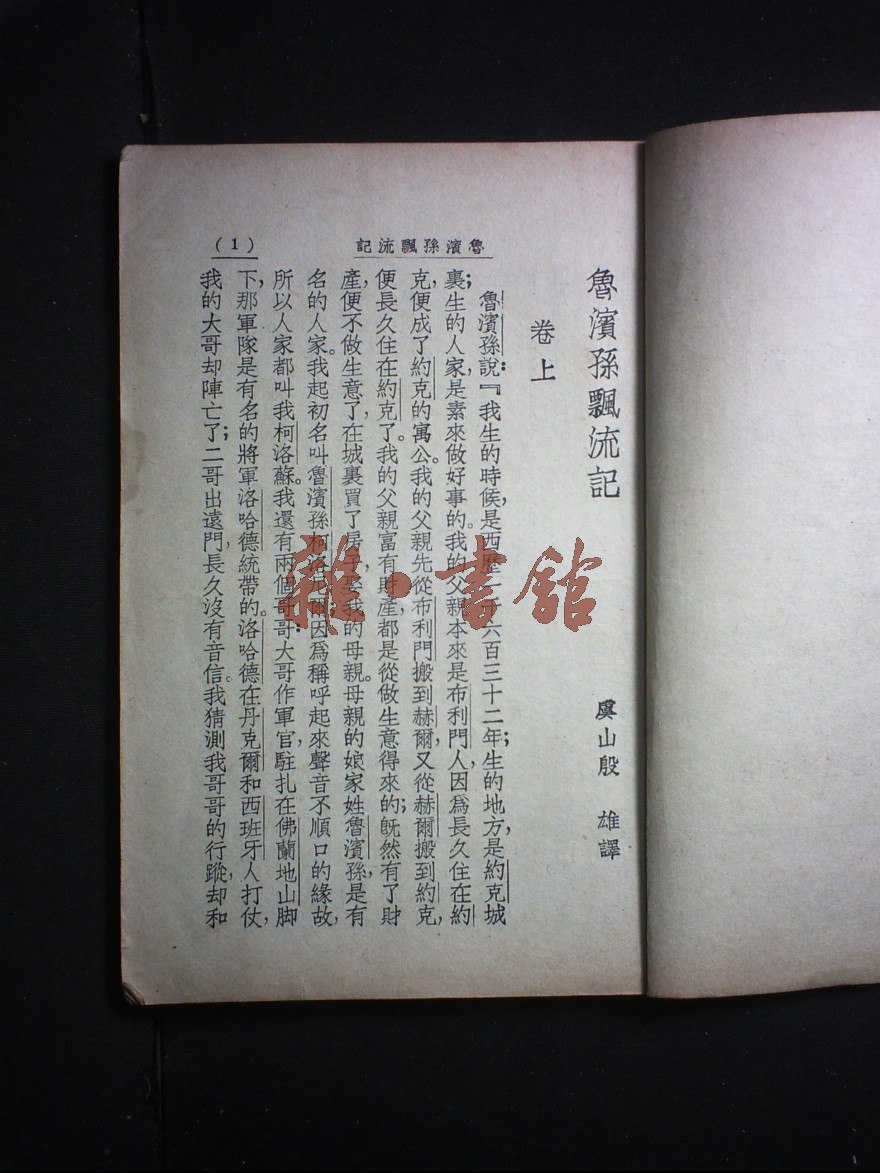 魯濱孫飄流記
(1)
魯濱孫飄流記
虞山殷 雄譯
卷上
魯濱孫說:『我生的時候,是西歷一千六百三十二年;生的地方,是約克城
裏;生的人家,是素來做好事的。我的父親本來是布利門人,因爲長久住在約
克,便成了約克的寓公。我的父親先從布利門搬到赫爾,又從赫爾搬到約克,
便長久住在約克了。我的父親富有財產,都是從做生意得來的;旣然有了財
產,便不做生意了,在城裏買了房子,娶我的母親。母親的娘家姓魯濱孫,是有
名的人家。我起初名叫魯濱孫柯洛尼爾,因爲稱呼起來聲音不順口的緣故,
所以人家都叫我柯洛蘇。我還有兩個哥哥:大哥作軍官,駐扎在佛蘭地山脚
下,那軍隊是有名的將軍洛哈德統帶的。洛哈德在丹克爾和西班牙人打仗,
我的大哥却陣亡了;二哥出遠門,長久沒有音信。我猜測我哥哥的行蹤,却和
雜·書館